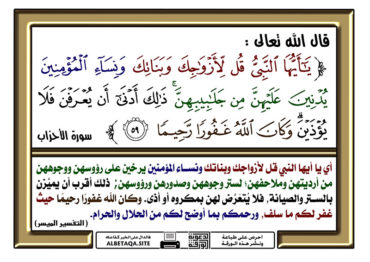 قال الله تعالى :
﴿ يَٰٓأَيُّهَا ٱلنَّبِيُّ قُل لِّأَزۡوَٰجِكَ وَبَنَاتِكَ وَنِسَآءِ ٱلۡمُؤۡمِنِينَ
يُدۡنِينَ عَلَيۡهِنَّ مِن جَلَٰبِيبِهِنَّۚ ذَٰلِكَ أَدۡنَىٰٓ أَن يُعۡرَفۡنَ فَلَا
يُؤۡذَيۡنَۗ وَكَانَ ٱللَّهُ غَفُورٗا رَّحِيمٗا ٥٩ ﴾ سورة الأحزاب
أي يا أيها النبي قل لأزواجك وبناتك ونساء المؤمنين يرخين على رؤوسهن ووجوههن
من أرديتهن وملاحفهن؛ لستر وجوههن وصدورهن ورؤوسهن؛ ذلك أقرب أن يميّزن
بالستر والصيانة, فلا يُتعرَّض لهن بمكروه أو أذى. وكان الله غفورًا رحيمًا حيث
غفر لكم ما سلف, ورحمكم بما أوضح لكم من الحلال والحرام.
(التفسير الميسر)
احرص على طباعة
ونشر هذه الورقة
فالدال على الخير كفاعله
ALBETAQA.SITE